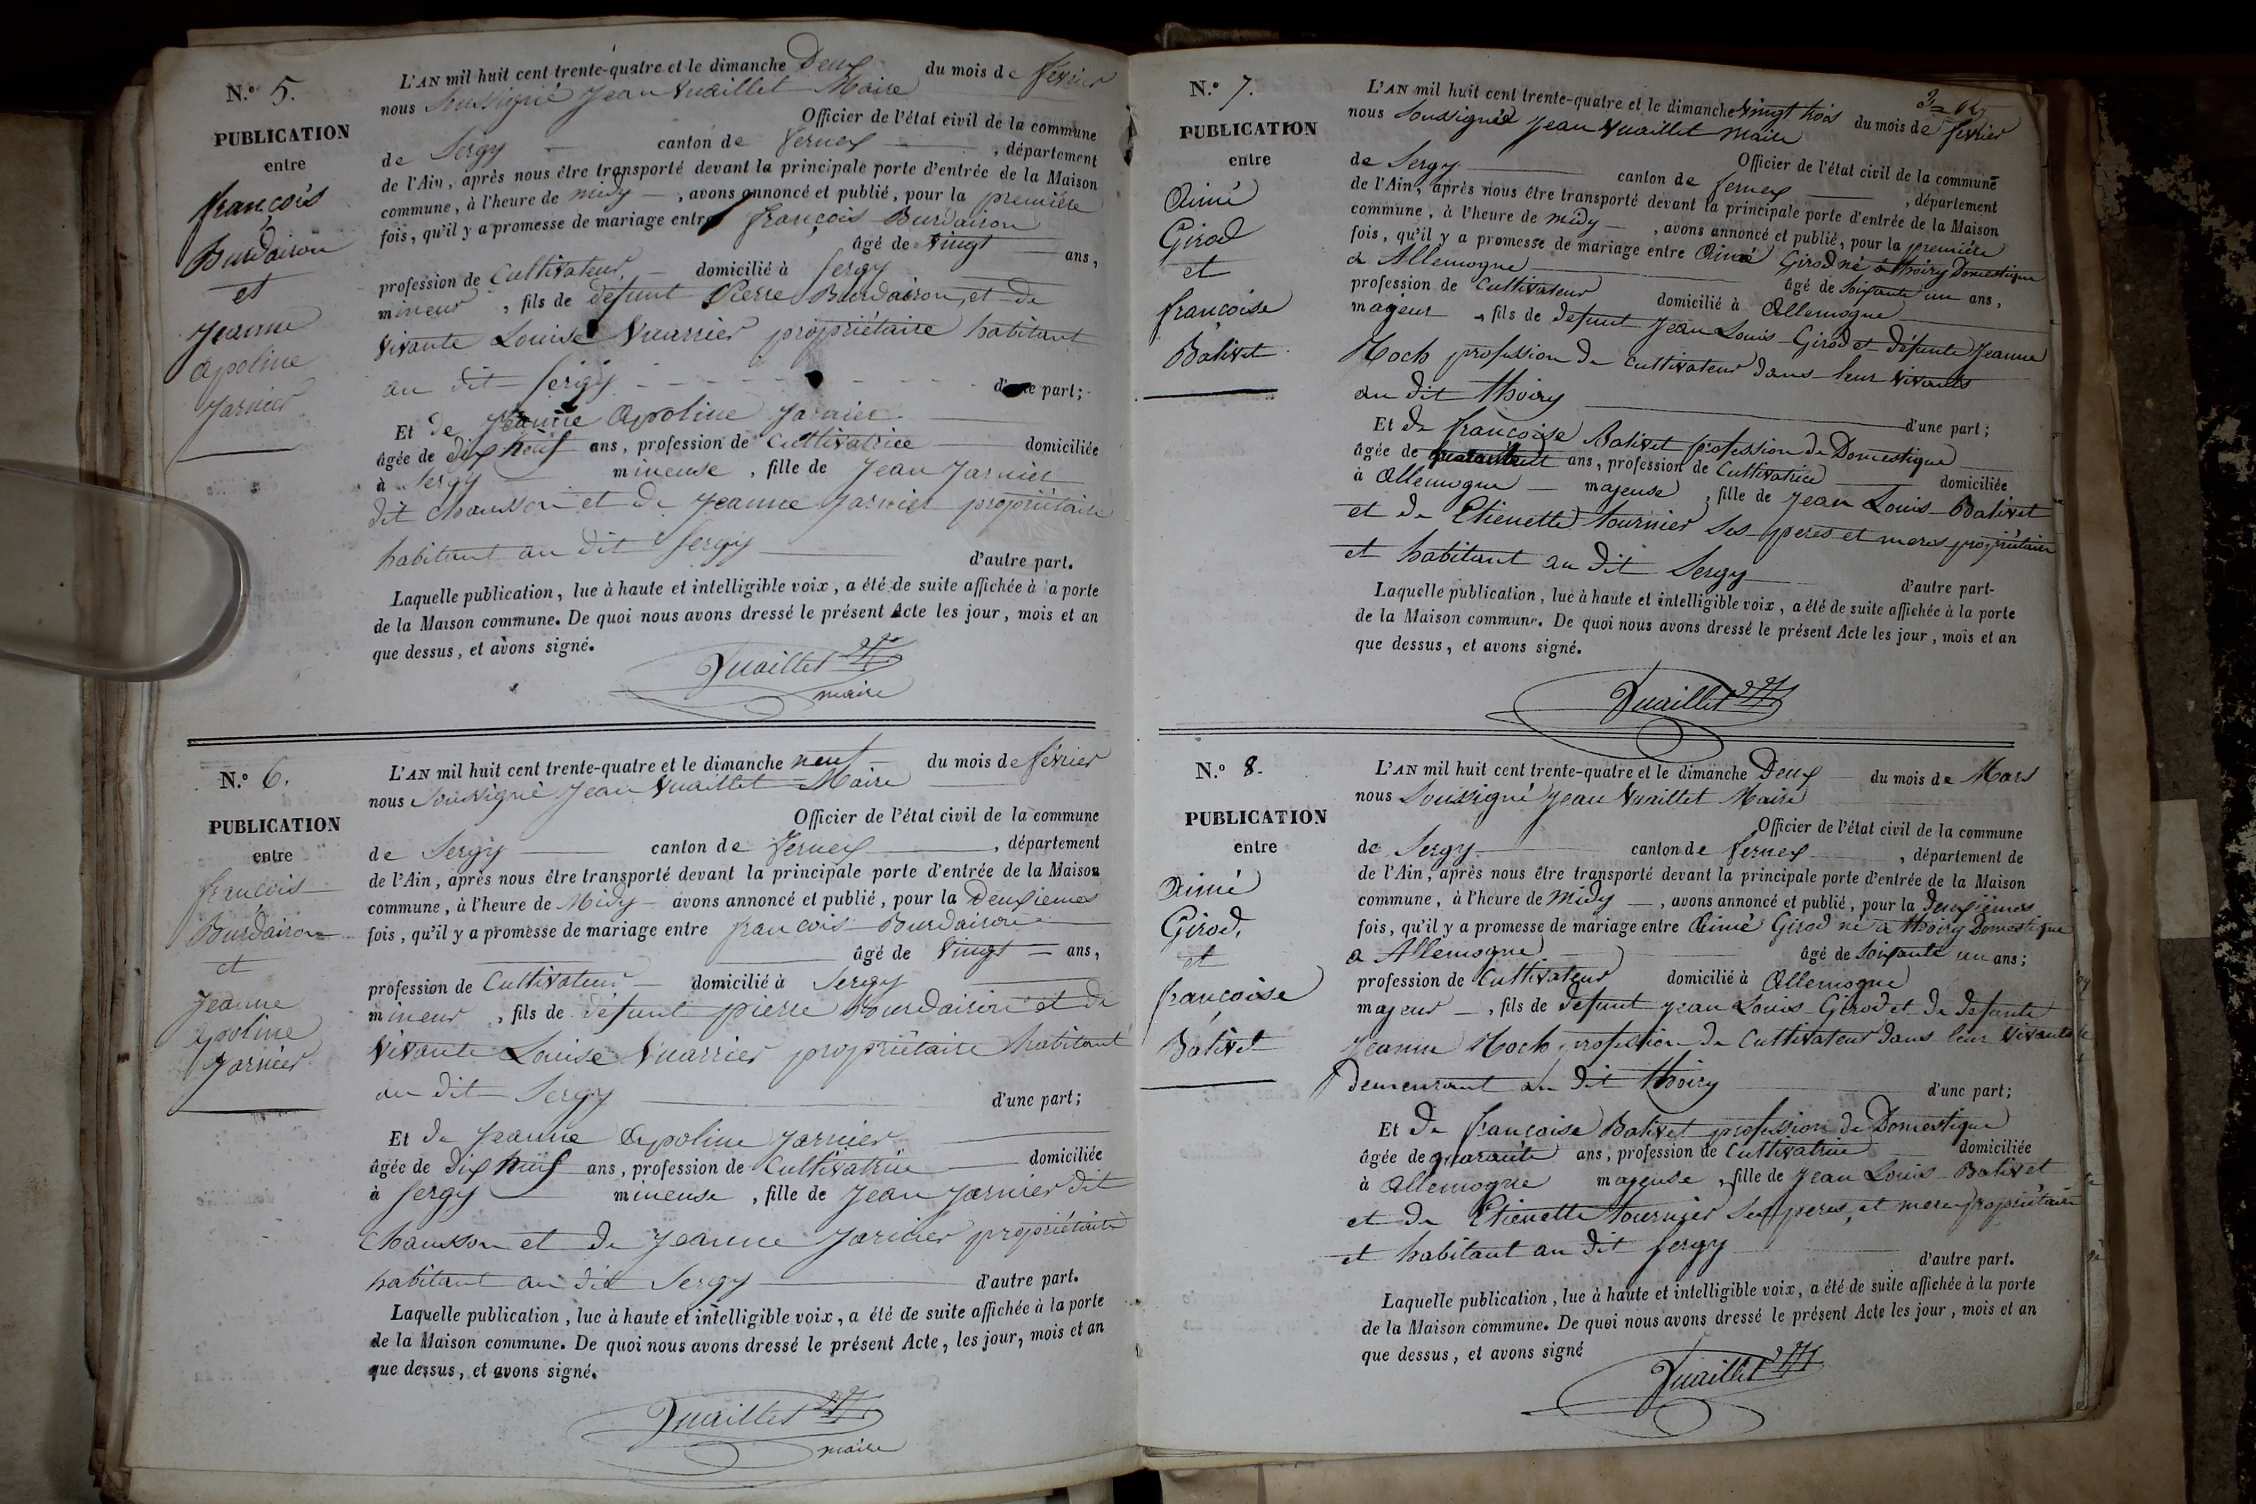 N.º 5.
PUBLICATION
entre
françois
Burdairon
et
Jeanne
apoline
Jarnier
L'AN mil huit cent trente-quatre et le dimanche Deux du mois de février
nous Soussigné Jean Vuaillet Maire
Officier de l'état civil de la commune
de Sergy canton de Fernex , département
de l'Ain, après nous être transporté devant la principale porte d'entrée de la Maison
commune, à l'heure de midy , avons annoncé et publié, pour la première
fois, qu'il y a promesse de mariage entre françois Burdairon
âgé de vingt ans,
profession de Cultivateur domicilié à Sergy
mineur , fils de defunt Pierre Burdairon et de
vivante Louise Vuarrier propriétaire habitant
au dit Sergy d'une part;
Et de Jeanne Apoline Jarnier
âgée de dix neuf ans, profession de Cultivatrice domiciliée
à Sergy mineuse , fille de Jean Jarnier
dit Chausson et de Jeanne Jarnier propriétaire
habitant au dit Sergy
d'autre part.
Laquelle publication, lue à haute et intelligible voix, a été de suite affichée à la porte
de la Maison commune. De quoi nous avons dressé le présent Acte les jour, mois et an
que dessus, et avons signé.
Vuaillet
maire
N.º 6.
PUBLICATION
entre
françois
Burdairon
et
Jeanne
apoline
Jarnier
L'AN mil huit cent trente-quatre et le dimanche neuf du mois de février
nous Soussigné Jean Vuaillet Maire
Officier de l'état civil de la commune
de Sergy canton de Fernex , département
de l'Ain, après nous être transporté devant la principale porte d'entrée de la Maison
commune, à l'heure de Midy avons annoncé et publié, pour la Deuxiemes
fois, qu'il y a promesse de mariage entre françois Burdairon
âgé de vingt ans,
profession de Cultivateur domicilié à Sergy
mineur , fils de défunt pierre Burdairon et de
vivante Louise Vuarrier propriétaire habitant
au dit Sergy
d'une part;
Et de Jeanne Apoline Jarnier
âgée de Dix neuf ans, profession de Cultivatrice domiciliée
à Sergy mineuse , fille de Jean Jarnier dit
Chausson et de Jeanne Jarnier propriétaire
habitant au dit Sergy d'autre part.
Laquelle publication, lue à haute et intelligible voix, a été de suite affichée à la porte
de la Maison commune. De quoi nous avons dressé le présent Acte, les jour, mois et an
que dessus, et avons signé.
Vuaillet
maire
N.º 7.
PUBLICATION
entre
Aimé
Girod
et
françoise
Balivet
L'AN mil huit cent trente-quatre et le dimanche vingt trois du mois de février
nous Soussigné Jean Vuaillet maire
Officier de l'état civil de la commune
de Sergy canton de Fernex , département
de l'Ain, après nous être transporté devant la principale porte d'entrée de la Maison
commune, à l'heure de midy , avons annoncé et publié, pour la première
fois, qu'il y a promesse de mariage entre Aimé Girod né à thoiry Domestique
a Allemogne âgé de Soixante un ans,
profession de Cultivateur domicilié à Allemogne
majeur , fils de defunt Jean Louis Girod et défunte Jeanne
Hoch profession de cultivateur dans leur vivants
au dit thoiry
d'une part;
Et de françoise Balivet profession de Domestique
âgée de ans, profession de Cultivatrice domiciliée
à Allemogne majeuse , fille de Jean Louis Balivet
et de Etienette tournier Ses peres et meres propriétaire
et habitant au dit Sergy
d'autre part-
Laquelle publication, lue à haute et intelligible voix, a été de suite affichée à la porte
de la Maison commune. De quoi nous avons dressé le présent Acte les jour, mois et an
que dessus, et avons signé.
Vuaillet
N.º 8.
PUBLICATION
entre
Aimé
Girod,
et
françoise
Balivet
L'AN mil huit cent trente-quatre et le dimanche Deux du mois de Mars
nous Soussigné Jean Vuaillet Maire
Officier de l'état civil de la commune
de Sergy canton de Fernex , département de
de l'Ain, après nous être transporté devant la principale porte d'entrée de la Maison
commune, à l'heure de Midy , avons annoncé et publié, pour la deuxiemes
fois, qu'il y a promesse de mariage entre Aimé Girod né a thoiry Domestique
a Allemogne âgé de Soixante un ans;
profession de Cultivateur domicilié à Allemogne
majeur , fils de defunt Jean Louis Girod et de defunte
Jeanne Hoch profession de Cultivateur dans leur vivants
demeurant au dit thoiry d'une part;
Et de françoise Balivet profession de Domestique
âgée de quarante ans, profession de Cultivatrice domiciliée
à Allemogne majeuse , fille de Jean Louis Balivet
et de Etienette tournier Ses peres et mere propriétaire
et habitant au dit Sergy
d'autre part.
Laquelle publication, lue à haute et intelligible voix, a été de suite affichée à la porte
de la Maison commune. De quoi nous avons dressé le présent Acte les jour, mois et an
que dessus, et avons signé
Vuaillet